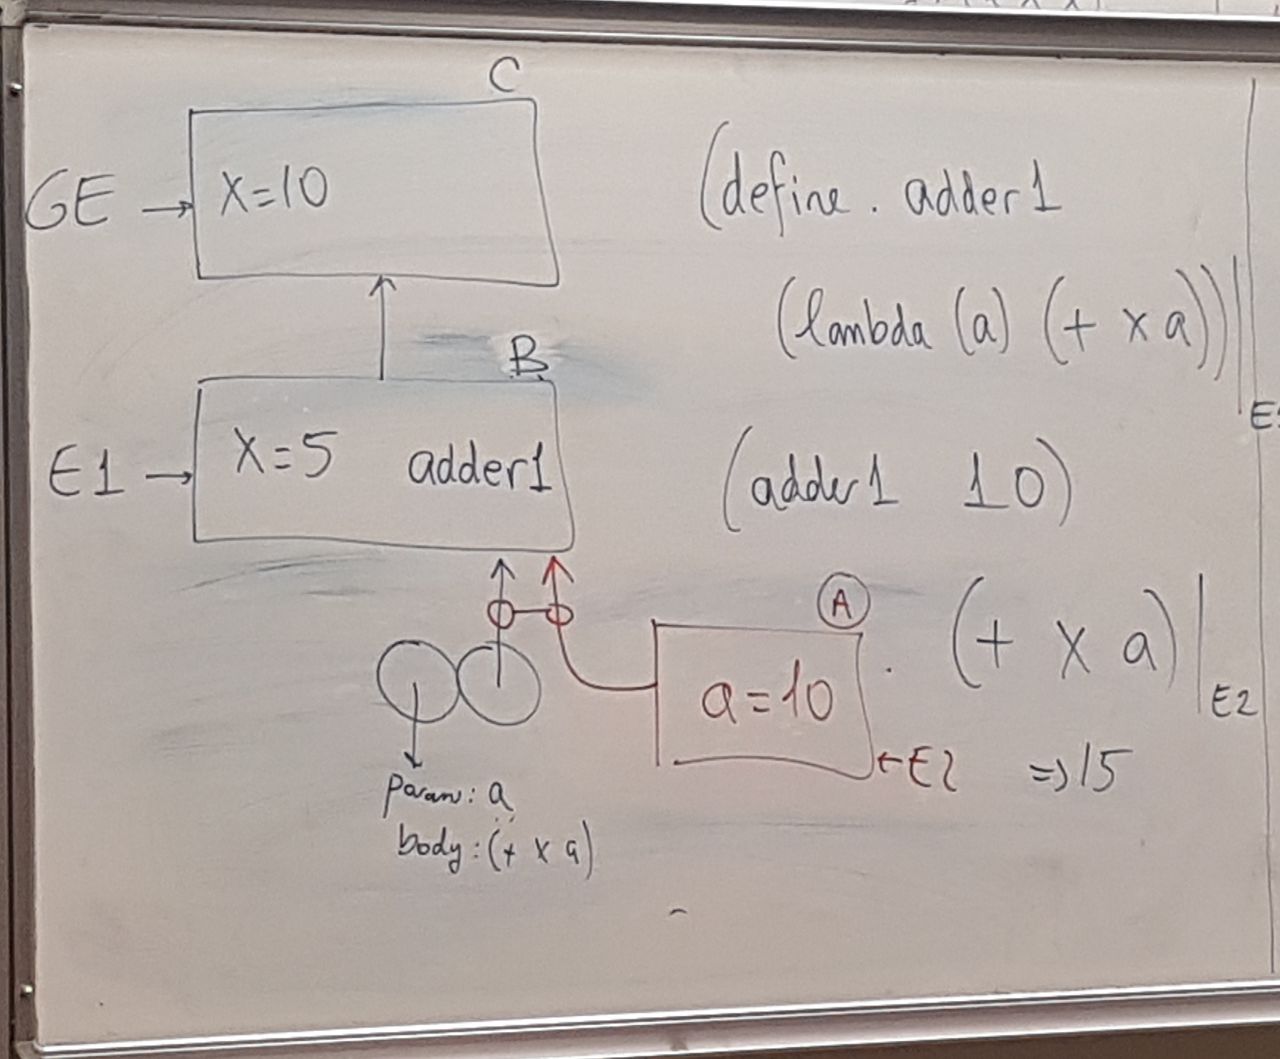 C
GE → x=10
B
E1 → x=5 adder1
param: a
body: (+ x a)
(define . adder1
(lambda (a) (+ x a))|
(adder1 10)
A
a=10
←E2
. (+ x a)|E2
=>15